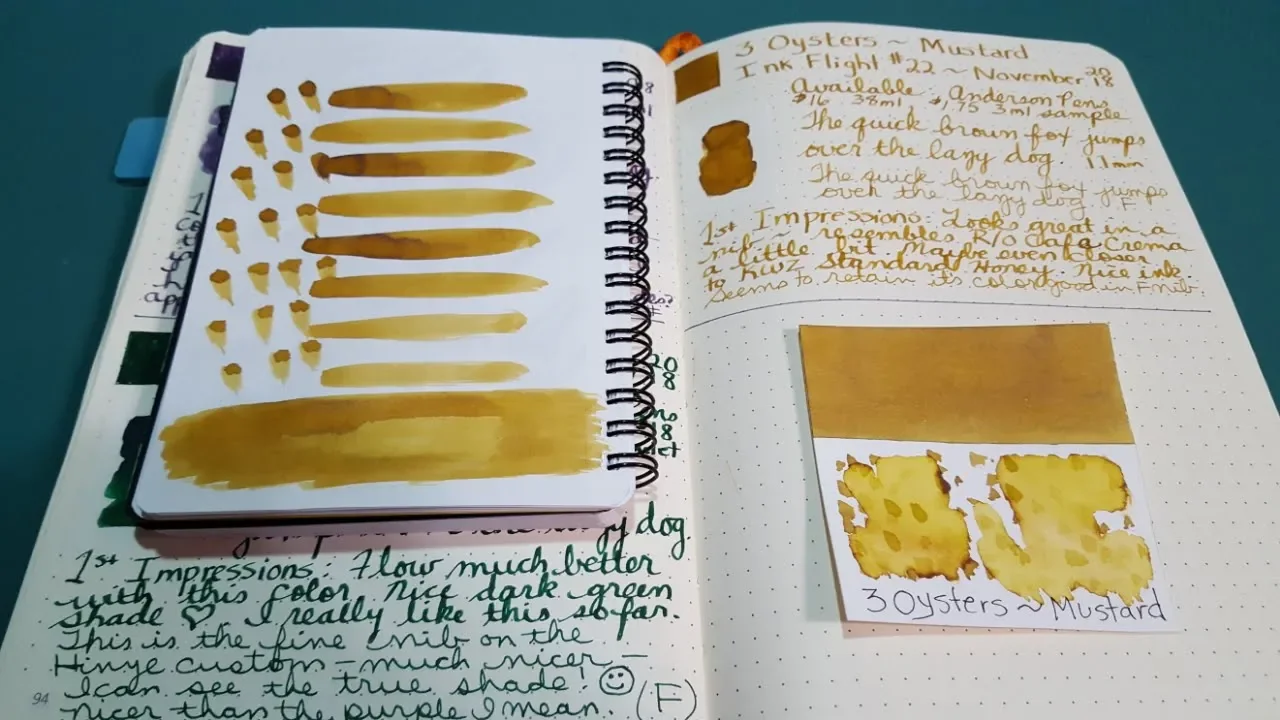 3 Oysters ~ Mustard
Ink Flight #22 ~ November 2018
Available: Anderson Pens
$16 38ml, $1.75 3ml sample
The quick brown fox jumps
over the lazy dog. 1.1mm
The quick brown fox jumps
over the lazy dog F
1st Impressions: Looks great in a
nib ~ resembles R/O Cafa Crema
a little bit. Maybe even closer
to KWZ Standard Honey. Nice ink.
Seems to retain its color good in F nib.
3 Oysters ~ Mustard
lazy dog.
1st Impressions: Flow much better
with this color. Nice dark green
shade ♡. I really like this so far.
This is the fine nib on the
Hinye custom – much nicer –
I can see the true shade! ☺
nicer than the purple I mean. (F)
94